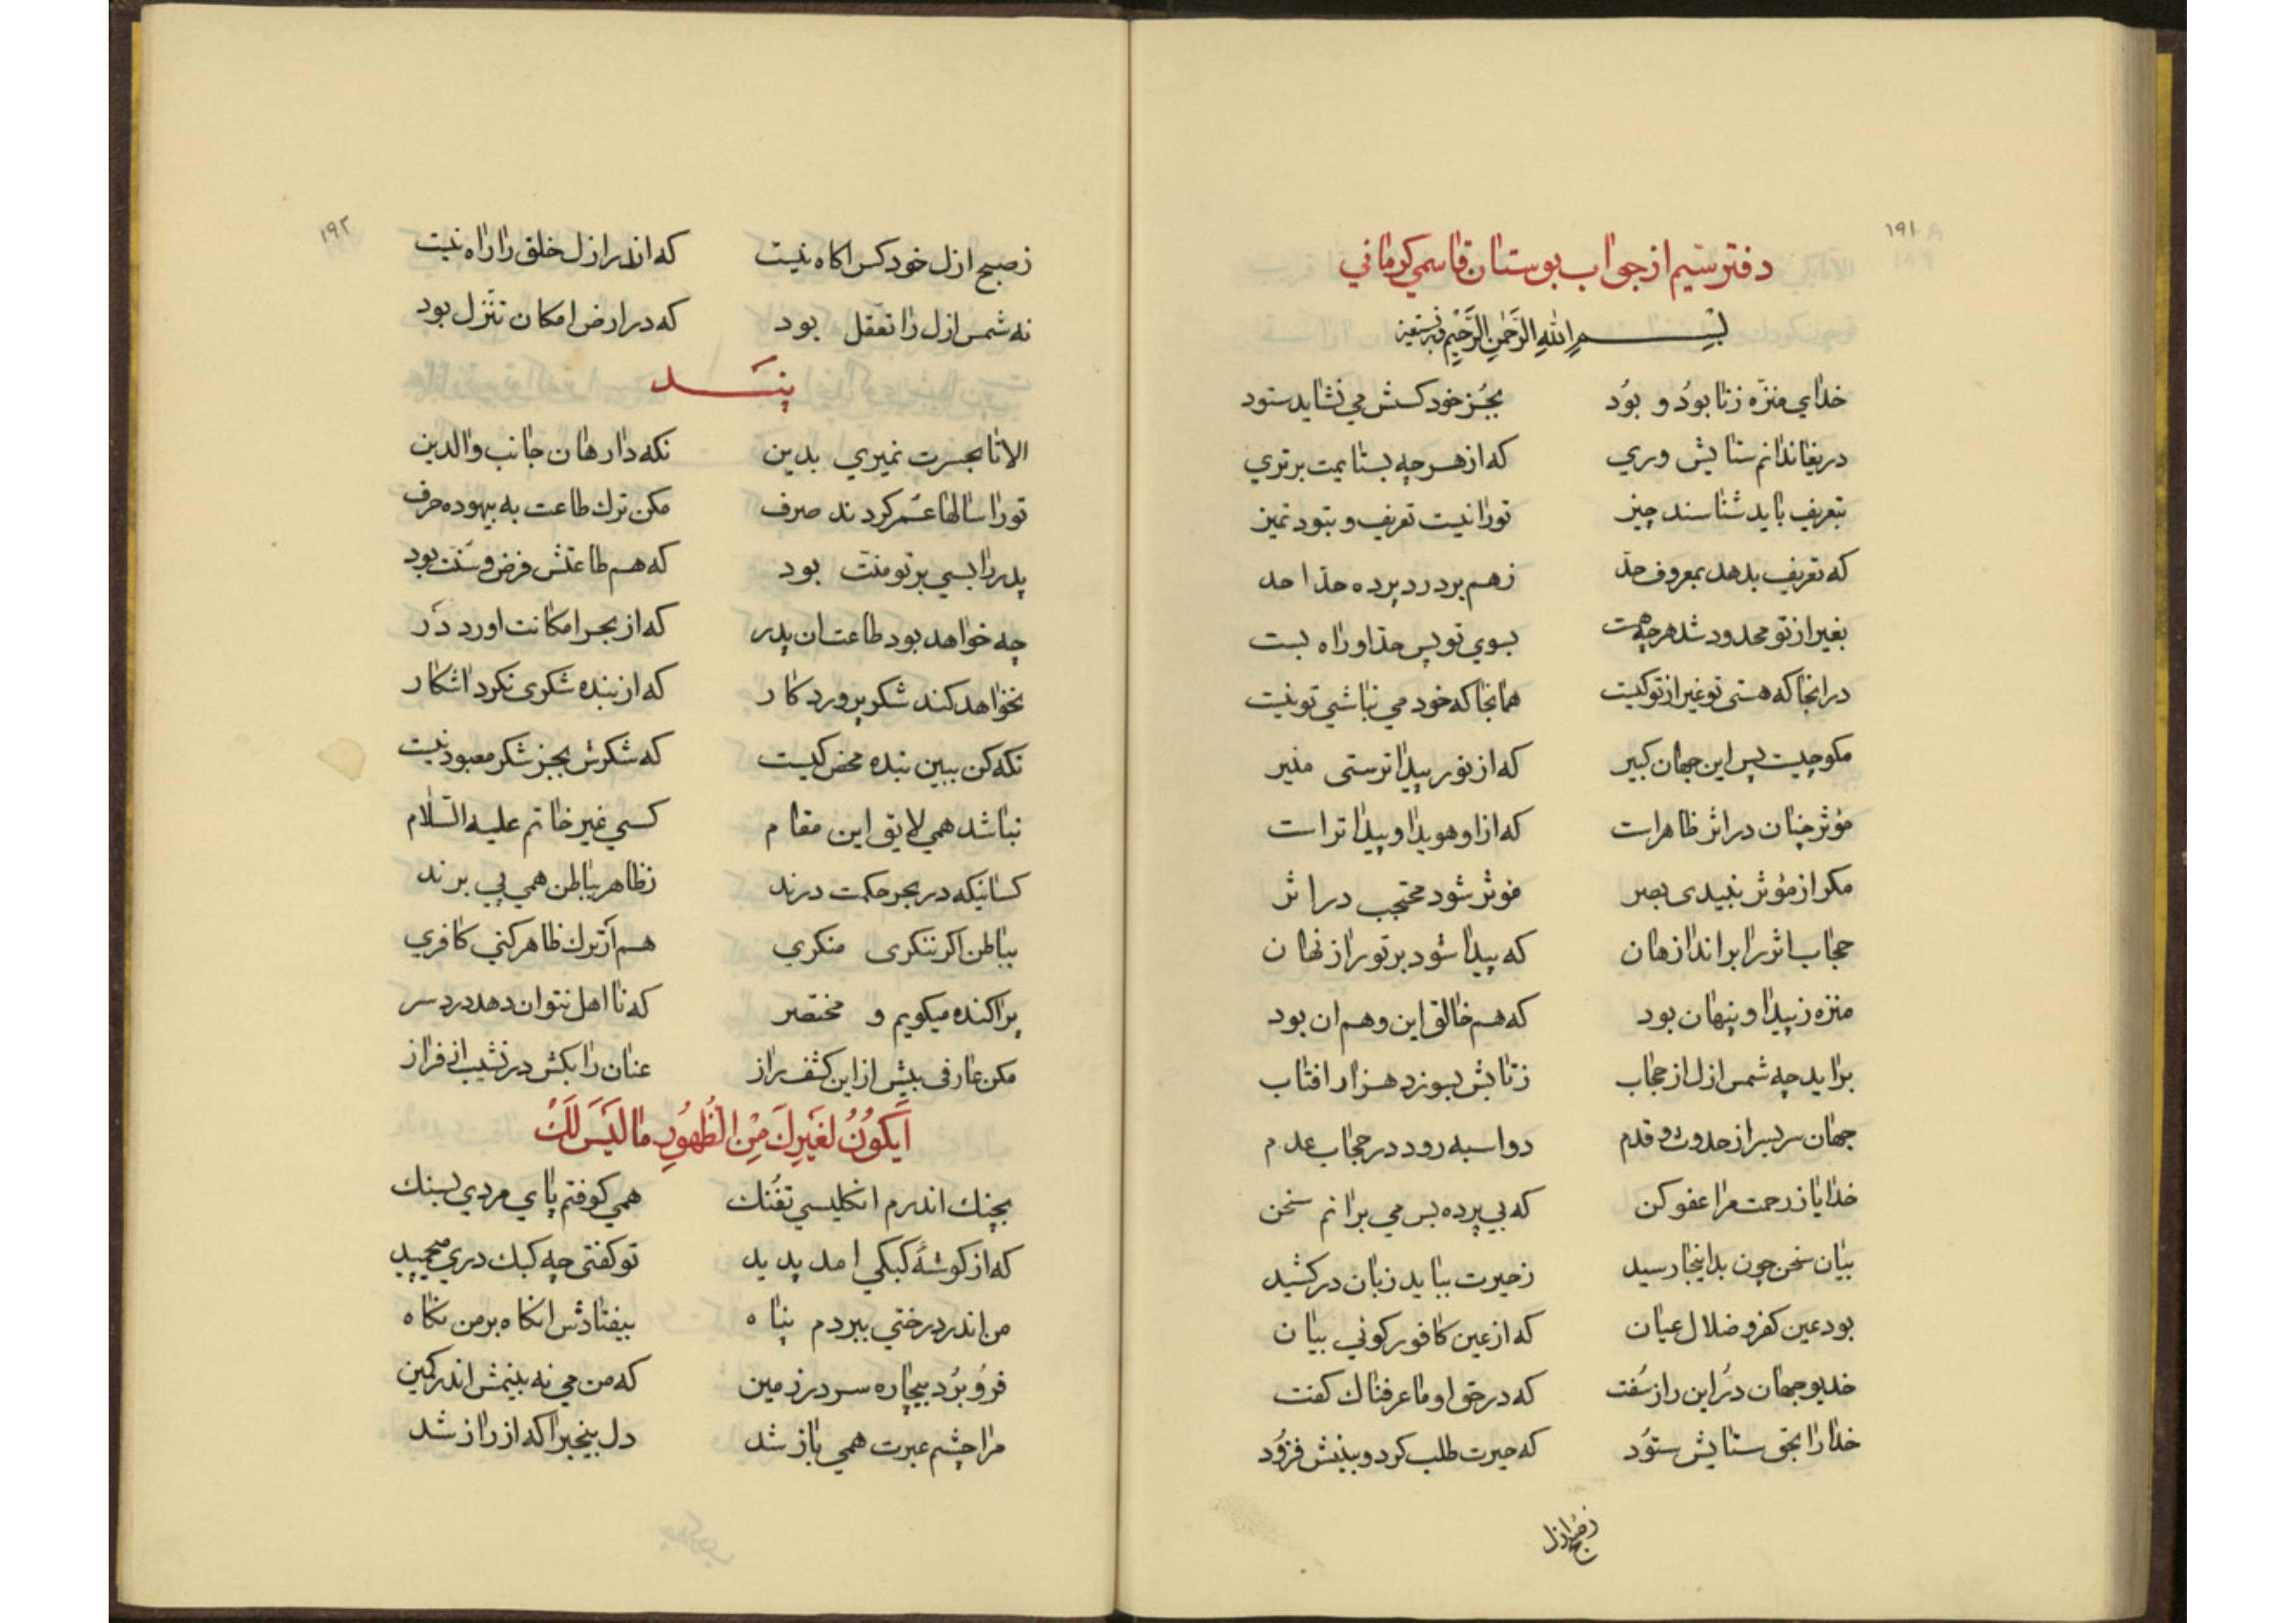 ۱۹۱
دفتر سیم از جواب بوستان قاسمی کرمانی
بسم الله الرَّحمنِ الرَّحیم وبه نستعین
خدای منزّه ز نابودُ و بوُد بجُز خود کسش می نشاید ستود
دریغا ندانم ستایش وری که از هر چه بستایمت برتری
بتعریف باید شناسند چیز تو را نیست تعریف و نبود تمیز
که تعریف بدهد بمعروف حدّ ز هم بر درد پرده حدّ احد
بغیر از تو محدود شد هر چه هست بسوی تو پس حدّ او راه بست
در انجا که هستی تو غیر از تو کیست همانجا که خود می نباشی تو نیست
مکو چیست پس این جهان کبیر که از نور پیداترستی منیر
مؤثر چنان در اثر ظاهر است که از او هویدا و پیداتر است
مکر از مؤثر نبیدی بصر مؤثر شود محتجب در اثر
حجاب اثر را برانداز هان که پیدا شود بر تو راز نهان
منزه ز پیدا و پنهان بود که هم خالق این و هم ان بود
براید چه شمس ازل از حجاب ز تابش بسوزد هزار افتاب
جهان سر بسر از حدوث و قدم دو اسبه رود در حجاب عدم
خدایا ز رحمت مرا عفو کن که بی پرده بس می برانم سخن
بیان سخن چون بداینجا رسید ز حیرت بباید زبان در کشید
بود عین کفر و ضلال عیان که از عین کافور کوئی بیان
خدیو جهان دُر این راز سُفت که در حق او ما عرفناك کفت
خدا را بحق ستایش ستوُد که حیرت طلب کرد و بینش فزوُد
ز صبح ازل
۱۹۲
ز صبح ازل خود کس اکاه نیست که اندر ازل خلق را راه نیست
نه شمس ازل را تعقّل بود که در ارض امکان تنزّل بود
پنـــد
الا تا بحسرت نمیری بدین نکه دار هان جانب والدین
تو را سالها عمر کردند صرف مکن ترك طاعت به بیهوده حرف
پدر را بسی بر تو منّت بود که هم طاعتش فرض و سنّت بود
چه خواهد بود طاعت ان پدر که از بحر امکانت اورد دُر
نخواهد کند شکر پرورد کار که از بنده شکری نکرد اشکار
نکه کن ببین بنده محض کیست که شکرش بجز شکر معبود نیست
نباشد همی لایق این مقام کسی غیر خاتم علیه السّلام
کسانیکه در بحر حکمت درند ز ظاهر بباطن همی پی برند
بباطن اکر ننکری منکری هم ار ترك ظاهر کنی کافری
پراکنده میکویم و مختصر که نا اهل نتوان دهد درد سر
مکن عارفی بیش از این کشف راز عنان را بکش در نشیب از فراز
اَیَکوُنُ لغَیرِكَ مِنَ الظُهُورِ ما لَیسَ لَكَ
بچنك اندرم انکلیسی تفنك همی کوفتم پای مردی بسنك
که از کوشهٔ کبکی امد پدید تو کفتی چه کبك دری میچمید
من اندر درختی ببردم پناه بیفتادش انکاه بر من نکاه
فروُ بُرد بیچاره سر در زمین که من می نه بینمش اندر کمین
مرا چشم عبرت همی باز شد دل بیخبر اکه از راز شد